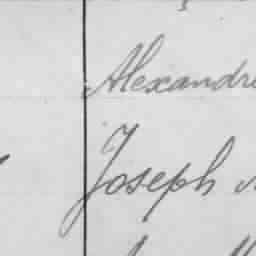 Alexandre
Joseph